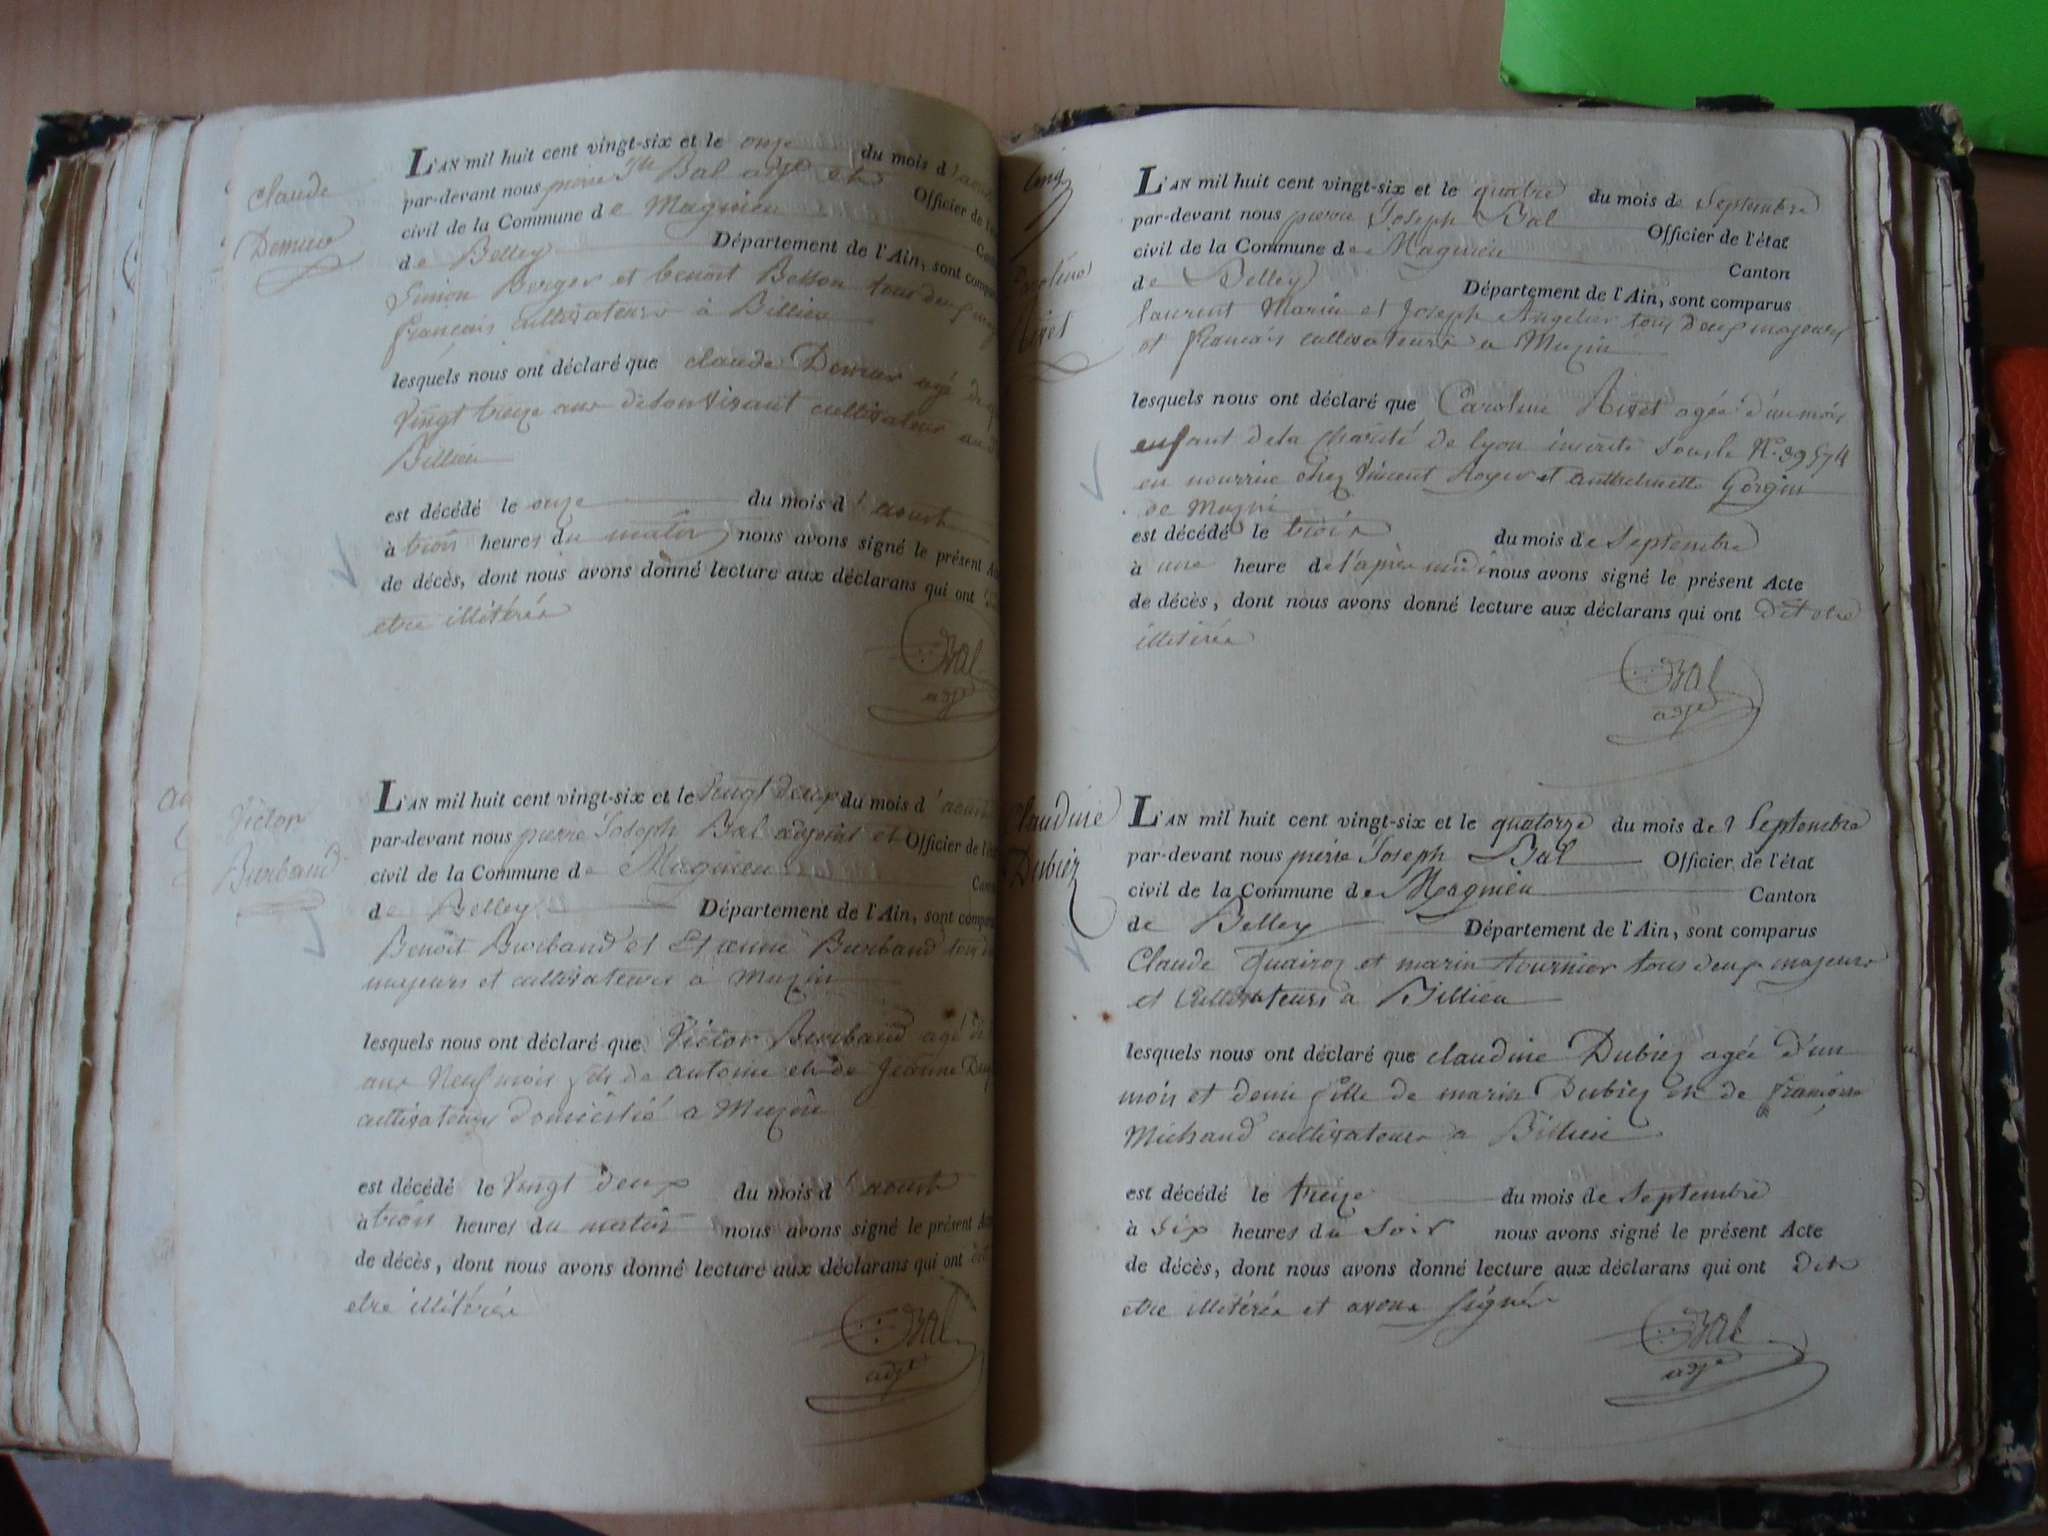 claude
Demeur
L'AN mil huit cent vingt-six et le onze du mois d'aoust
par-devant nous pierre Jh Bal adjt et Officier de l'état
civil de la Commune de Magnieu
de Belley Département de l'Ain, sont comparus
Simon Berger et benoit Betton tous deux
francais cultivateurs à Billieu
lesquels nous ont déclaré que claude Demeur agé de
vingt treize ans cultivateur
Billieu
est décédé le onze du mois d'aoust
à trois heures du matin nous avons signé le présent
de décès, dont nous avons donné lecture aux déclarans qui ont
etre illitérés
Bal
adjt
Victor
Burbaud
L'AN mil huit cent vingt-six et le vingt deux du mois d'aoust
par-devant nous pierre Joseph Bal adjoint et Officier de l'état
civil de la Commune de Magnieu
de Belley Département de l'Ain, sont comparus
Benoît Burbaud et Etienne Burbaud tous
majeurs et cultivateurs a Muzin
lesquels nous ont déclaré que Victor Burbaud agé de
ans neuf mois fils de antoine et de Jeanne
cultivateurs domicilié a Muzin
est décédé le vingt deux du mois d'aoust
à trois heures du matin nous avons signé le présent
de décès, dont nous avons donné lecture aux déclarans qui ont
etre illitérés
Bal
adjt
Caroline
Rivet
L'AN mil huit cent vingt-six et le quatre du mois de Septembre
par-devant nous pierre Joseph Bal Officier de l'état
civil de la Commune de Magnieu Canton
de Belley Département de l'Ain, sont comparus
laurent Marin et Joseph Angelier tous deux majeurs
et francais cultivateurs a Muzin
lesquels nous ont déclaré que Caroline Rivet agée d'un mois
enfant de la Charité de lyon inscrite sous le N.° 39574
en nourrice chez Vincent Roger et anthelmette Gorgin
de Muzin
est décédé le trois du mois de Septembre
à une heure de l'après midi nous avons signé le présent Acte
de décès, dont nous avons donné lecture aux déclarans qui ont dit etre
illitérés
Bal
adjt
Claudine
Dubiez
L'AN mil huit cent vingt-six et le quatorze du mois de Septembre
par-devant nous pierre Joseph Bal Officier de l'état
civil de la Commune de Magnieu Canton
de Belley Département de l'Ain, sont comparus
Claude Quairoz et marin tournier tous deux majeurs
et Cultivateurs a Billieu
lesquels nous ont déclaré que claudine Dubiez agée d'un
mois et demi fille de marin Dubiez et de francoise
Michaud cultivateurs a Billieu
est décédé le treize du mois de Septembre
à six heures du soir nous avons signé le présent Acte
de décès, dont nous avons donné lecture aux déclarans qui ont dit
etre illitérés et avons signé
Bal
adjt